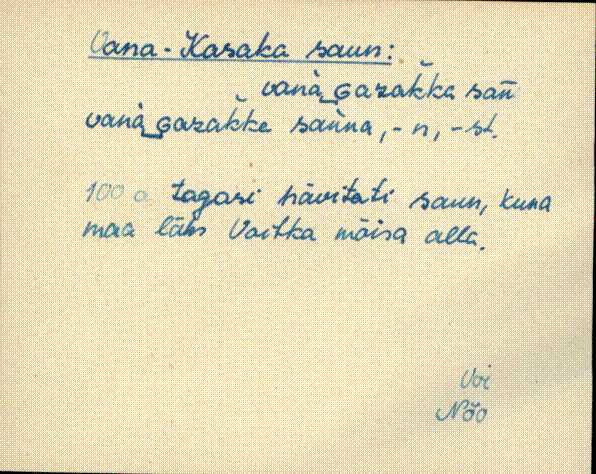 Vana-Kasaka saun:
vanà‿Gazak̆ka sau̯n
vanà‿Gazak̆ke sau̯na, -n, -st.
100 a. tagasi hävitati saun, kuna
maa läks Voitka mõisa alla.
Voi
Nõo